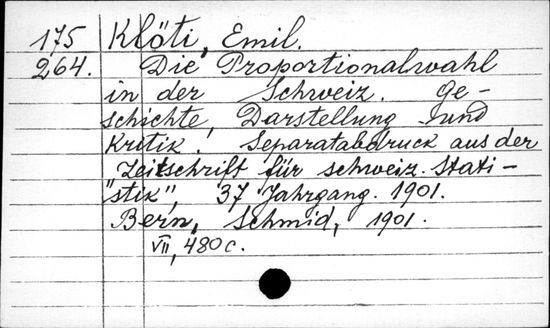 175 Klöti, Emil.
264. Die Proportionalwahl
in der Schweiz. Ge-
schichte, Darstellung und
Kritik. Separatabdruck aus der
"Zeitschrift für schweiz. Stati-
stik", 37 Jahrgang. 1901.
Bern, Schmid, 1901.
VII, 480 c.